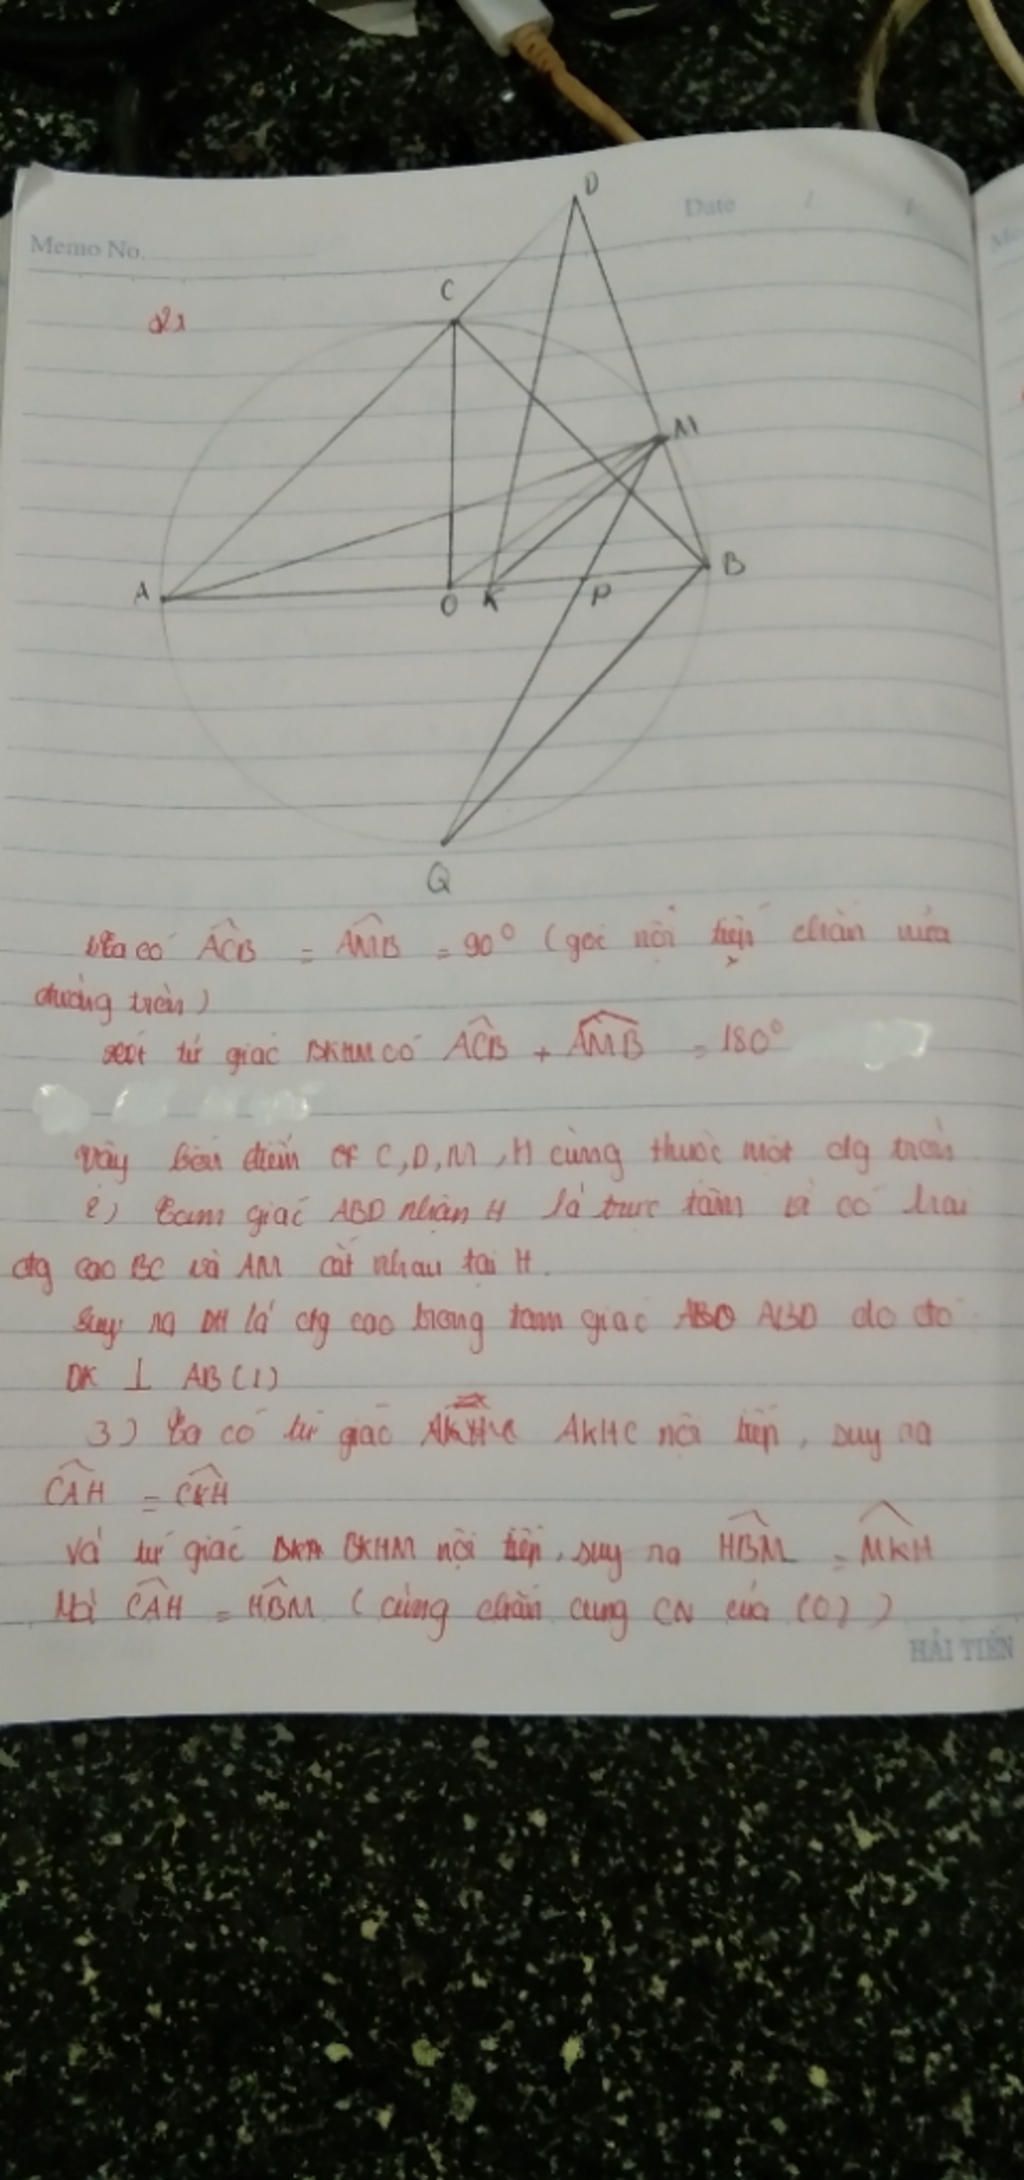 Memo No.
Date / /
D
C
M
A
O
K
P
B
Q
Ta có ACB = AMB = 90° (góc nội tiếp chắn nửa
đường tròn)
xét tứ giác BKHM có ACB + AMB = 180°
Vậy bốn điểm C, D, M, H cùng thuộc một đg tròn
2) Tam giác ABD nhận H là trực tâm vì có hai
đg cao BC và AM cắt nhau tại H.
Suy ra DH là đg cao trong tam giác ABD do đó
DK ⊥ AB (1)
3) Ta có tứ giác AKHC nội tiếp, suy ra
CAH = CKH
Và tứ giác BKHM nội tiếp, suy ra HBM = MKH
Mà CAH = HBM (cùng chắn cung CN của (O))
HẢI TIẾN